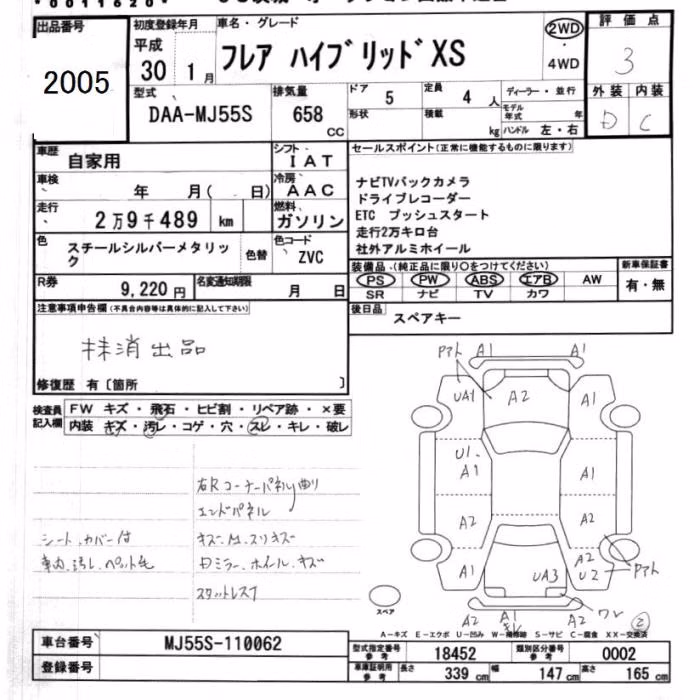 0011620
出品番号
2005
初度登録年月
平成
30 1月
車名・グレード
フレア ハイブリッドXS
2WD
・
4WD
評価点
3
外装 内装
D C
型式
DAA-MJ55S
排気量
658
CC
ドア
5
定員
4 人
形状
積載
kg
ディーラー・並行
モデル年式 年
ハンドル 左・右
車歴
自家用
シフト
IAT
車検
年 月( 日)
冷房
AAC
走行
2万9千489 km
燃料
ガソリン
色
スチールシルバーメタリック
色替
色コード
ZVC
R券
9,220円
名変通知期限
月 日
セールスポイント(正常に機能するものに限ります)
ナビTVバックカメラ
ドライブレコーダー
ETC プッシュスタート
走行2万キロ台
社外アルミホイール
装備品 (純正品に限り○をつけてください)
新車保証書
PS PW ABS エアB AW
有・無
SR ナビ TV カワ
後日品
スペアキー
注意事項申告欄(不具合内容等は具体的に記入して下さい)
抹消出品
修復歴 有〔箇所 〕
検査員記入欄
FW キズ・飛石・ヒビ割・リペア跡・×要
内装 キズ・汚レ・コゲ・穴・スレ・キレ・破レ
右Rコーナーパネル曲り
エンドパネル
シート、カバー付
キズ、凹、スリキズ
車内、汚し、ペット毛
ドミラー、ホイール、キズ
スタットレス7
A1
A1
アアト
UA1
A2
A1
U1
A1
A1
A2
A2
A1
UA3
A2
U2
アアト
ワレ
A2
A1
キレ
A2
②
スペア
A-キズ E-エクボ U-凹み W-補修跡 S-サビ C-腐食 XX-交換済
車台番号
MJ55S-110062
登録番号
型式指定番号 参考
18452
類別区分番号 参考
0002
車庫証明用 参考
長さ 339 cm
幅 147 cm
高さ 165 cm